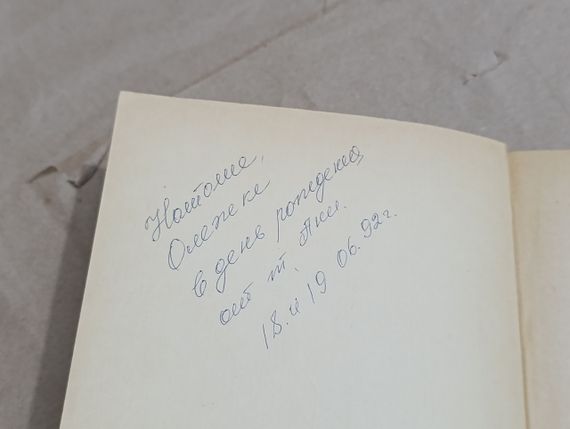 Наташе,
Олежеке
в день рождения
от т. Ани.
18. и 19 06.92г.